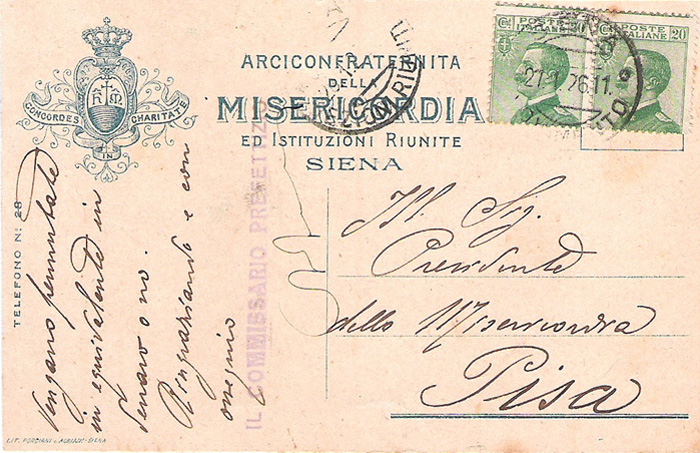 ARCICONFRATERNITA
DELLA
MISERICORDIA
ED ISTITUZIONI RIUNITE
SIENA
CONCORDES IN CHARITATE
TELEFONO N: 28
C. POSTE 20
ITALIANE
C. POSTE 20
ITALIANE
21.1.26.11
IL COMMISSARIO PREFETTIZIO
Ill. Sig.
Presidente
della Misericordia
Pisa
Vengano
in equivalente in
denaro o no.
Ringraziando e con
ossequio
LIT. - SIENA